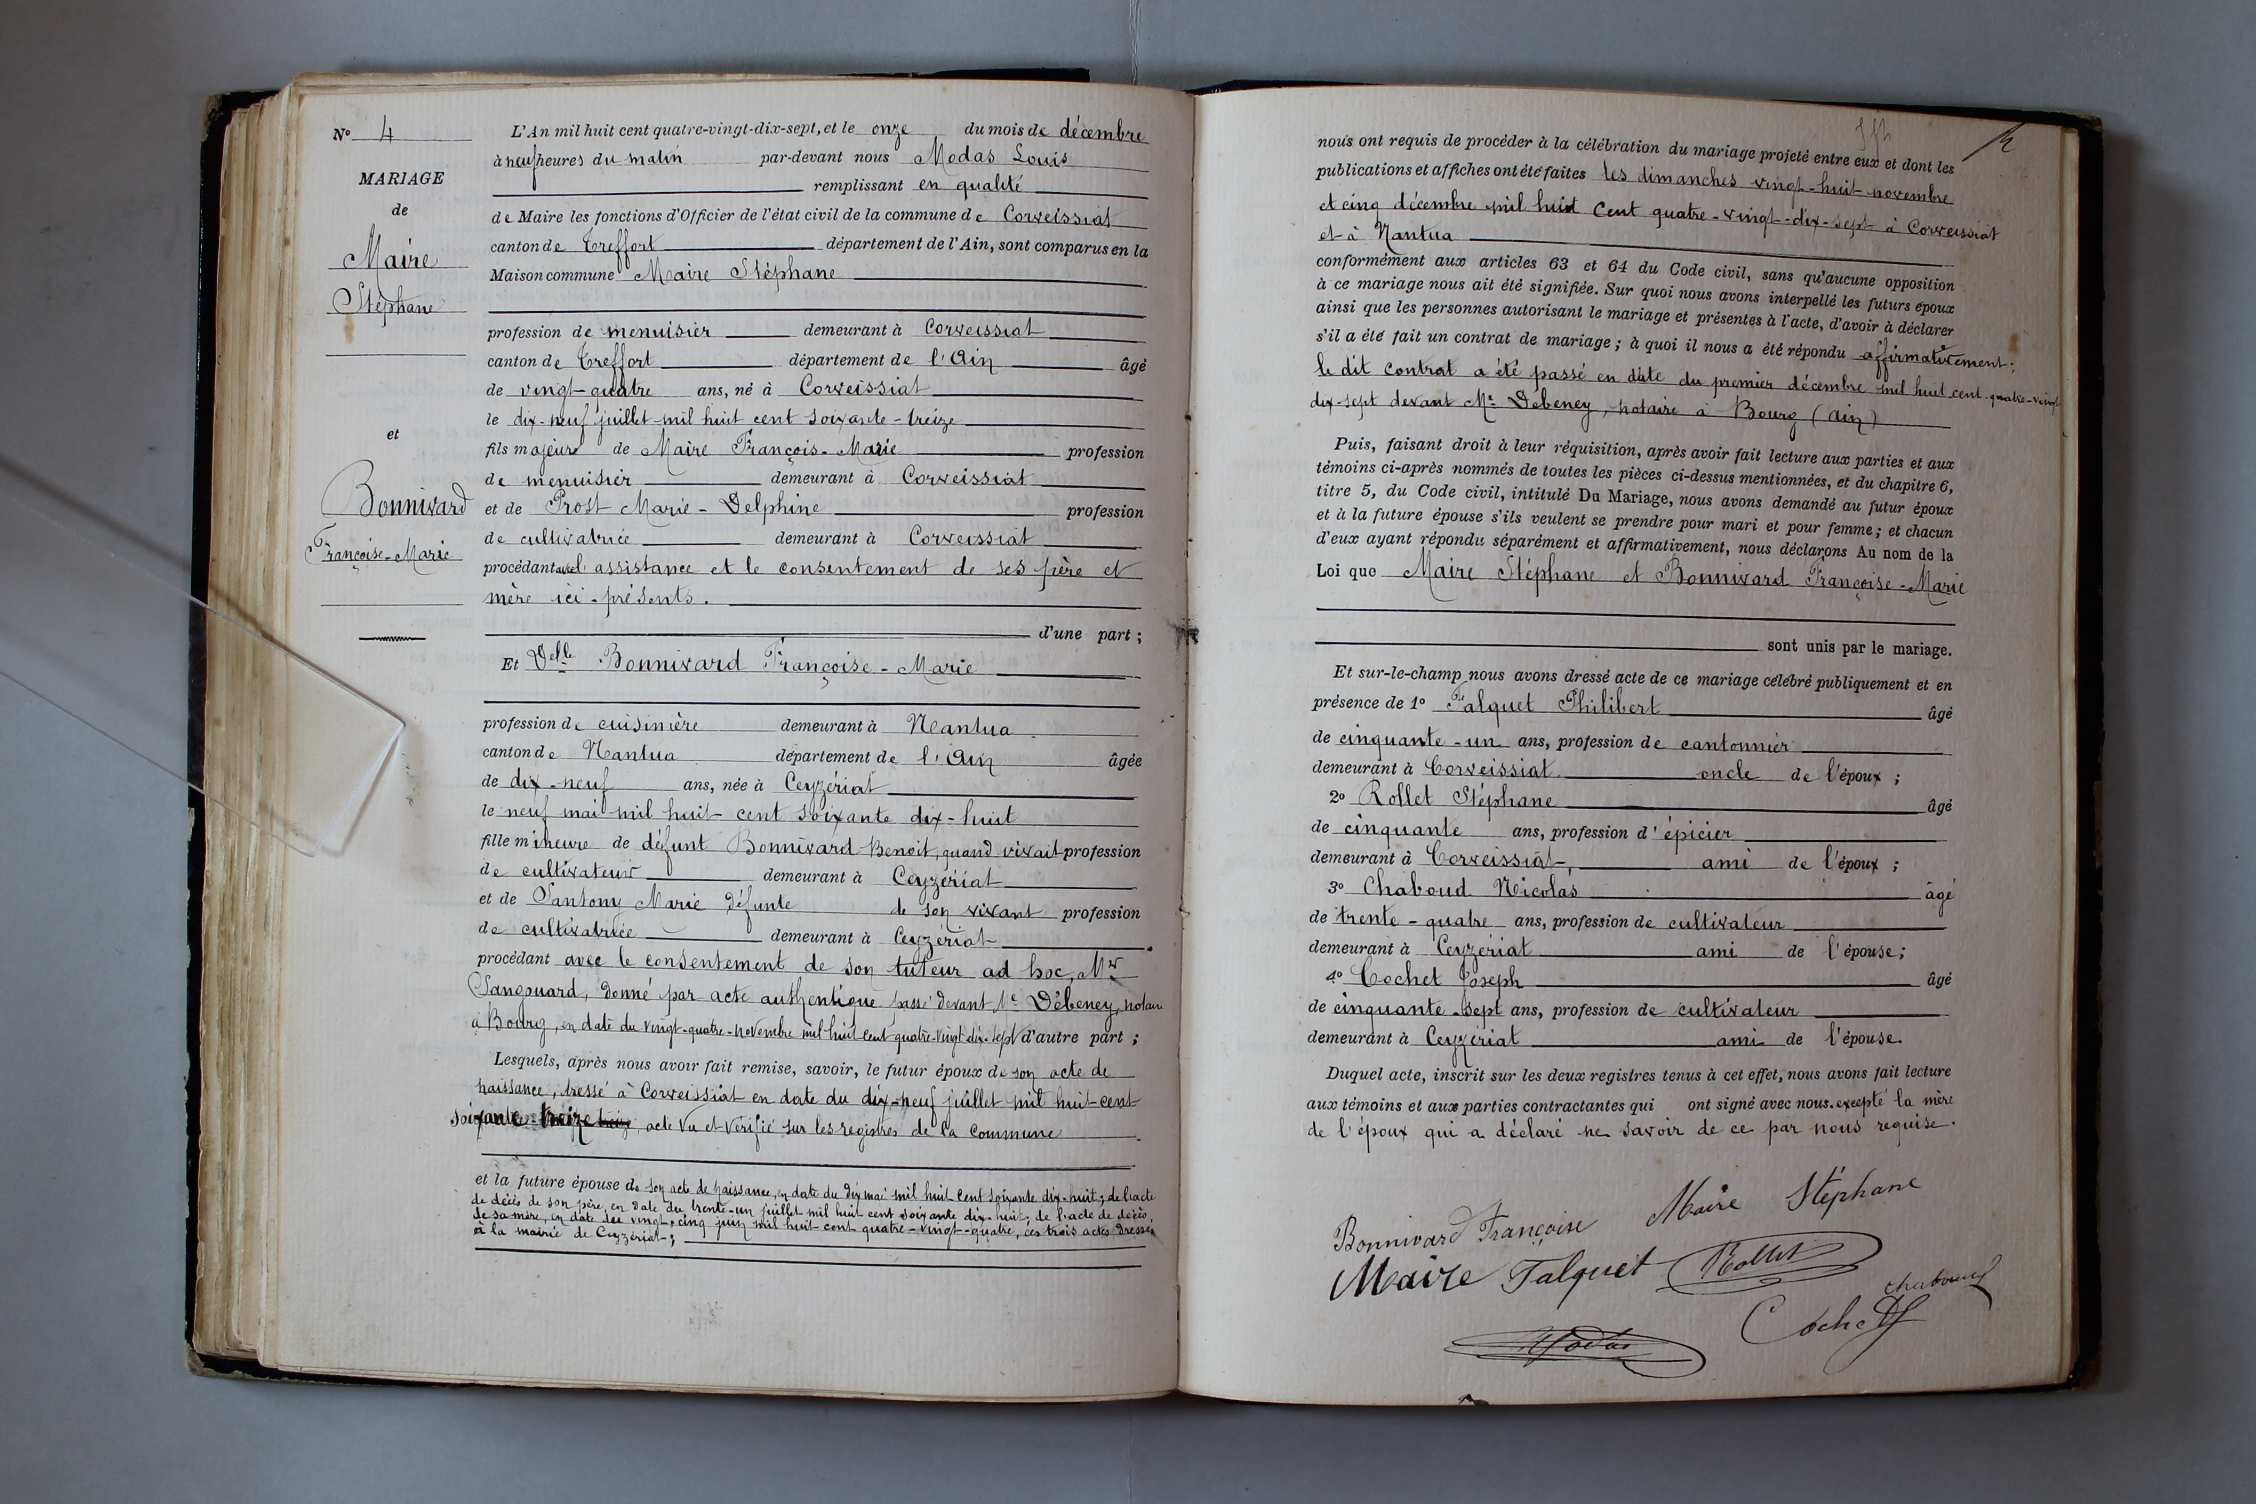 N° 4
MARIAGE
de
Maire
Stéphane
et
Bonnivard
Françoise-Marie
L'An mil huit cent quatre-vingt-dix-sept, et le onze du mois de décembre
à neuf heures du matin par-devant nous Modas Louis
remplissant en qualité
de Maire les fonctions d'Officier de l'état civil de la commune de Corveissiat
canton de Treffort département de l'Ain, sont comparus en la
Maison commune Maire Stéphane
profession de menuisier demeurant à Corveissiat
canton de Treffort département de l'Ain âgé
de vingt-quatre ans, né à Corveissiat
le dix-neuf juillet mil huit cent soixante-treize
fils majeur de Maire François-Marie profession
de menuisier demeurant à Corveissiat
et de Prost Marie-Delphine profession
de cultivatrice demeurant à Corveissiat
procédant avec l'assistance et le consentement de ses père et
mère ici-présents.
d'une part ;
Et Delle Bonnivard Françoise-Marie
profession de cuisinière demeurant à Nantua
canton de Nantua département de l'Ain âgée
de dix-neuf ans, née à Ceyzériat
le neuf mai mil huit cent soixante dix-huit
fille mineure de défunt Bonnivard Benoit, quand vivait profession
de cultivateur demeurant à Ceyzériat
et de Santony Marie défunte de son vivant profession
de cultivatrice demeurant à Ceyzériat
procédant avec le consentement de son tuteur ad hoc, Mr
Sangouard, donné par acte authentique passé devant Me Débeney, notaire
à Bourg, en date du vingt-quatre novembre mil huit cent quatre-vingt-dix-sept d'autre part ;
Lesquels, après nous avoir fait remise, savoir, le futur époux de son acte de
naissance, dressé à Corveissiat en date du dix-neuf juillet mil huit-cent
soixante-treize, acte vu et vérifié sur les registres de la commune
et la future épouse de son acte de naissance, en date du dix mai mil huit cent soixante dix-huit; de l'acte
de décès de son père, en date du trente-un juillet mil huit cent soixante dix-huit; de l'acte de décès
de sa mère, en date du vingt-cinq juin mil huit-cent quatre-vingt-quatre, ces trois actes dressés
à la mairie de Ceyzériat;
nous ont requis de procéder à la célébration du mariage projeté entre eux et dont les
publications et affiches ont été faites les dimanches vingt-huit novembre
et cinq décembre mil huit cent quatre-vingt-dix-sept à Corveissiat
et à Nantua
conformément aux articles 63 et 64 du Code civil, sans qu'aucune opposition
à ce mariage nous ait été signifiée. Sur quoi nous avons interpellé les futurs époux
ainsi que les personnes autorisant le mariage et présentes à l'acte, d'avoir à déclarer
s'il a été fait un contrat de mariage ; à quoi il nous a été répondu affirmativement;
le dit contrat a été passé en date du premier décembre mil huit cent quatre-vingt
dix-sept devant Me Debeney, notaire à Bourg (Ain)
Puis, faisant droit à leur réquisition, après avoir fait lecture aux parties et aux
témoins ci-après nommés de toutes les pièces ci-dessus mentionnées, et du chapitre 6,
titre 5, du Code civil, intitulé Du Mariage, nous avons demandé au futur époux
et à la future épouse s'ils veulent se prendre pour mari et pour femme; et chacun
d'eux ayant répondu séparément et affirmativement, nous déclarons Au nom de la
Loi que Maire Stéphane et Bonnivard Françoise-Marie
sont unis par le mariage.
Et sur-le-champ nous avons dressé acte de ce mariage célébré publiquement et en
présence de 1° Falquet Philibert âgé
de cinquante-un ans, profession de cantonnier
demeurant à Corveissiat oncle de l'époux ;
2° Rollet Stéphane âgé
de cinquante ans, profession d'épicier
demeurant à Corveissiat, ami de l'époux ;
3° Chaboud Nicolas âgé
de trente-quatre ans, profession de cultivateur
demeurant à Ceyzériat ami de l'épouse;
4° Cochet Joseph âgé
de cinquante-sept ans, profession de cultivateur
demeurant à Ceyzériat ami de l'épouse.
Duquel acte, inscrit sur les deux registres tenus à cet effet, nous avons fait lecture
aux témoins et aux parties contractantes qui ont signé avec nous. excepté la mère
de l'époux qui a déclaré ne savoir de ce par nous requise.
Bonnivard Françoise Maire Stéphane
Maire Falquet Rollet
Chaboud
Cochet
Modas